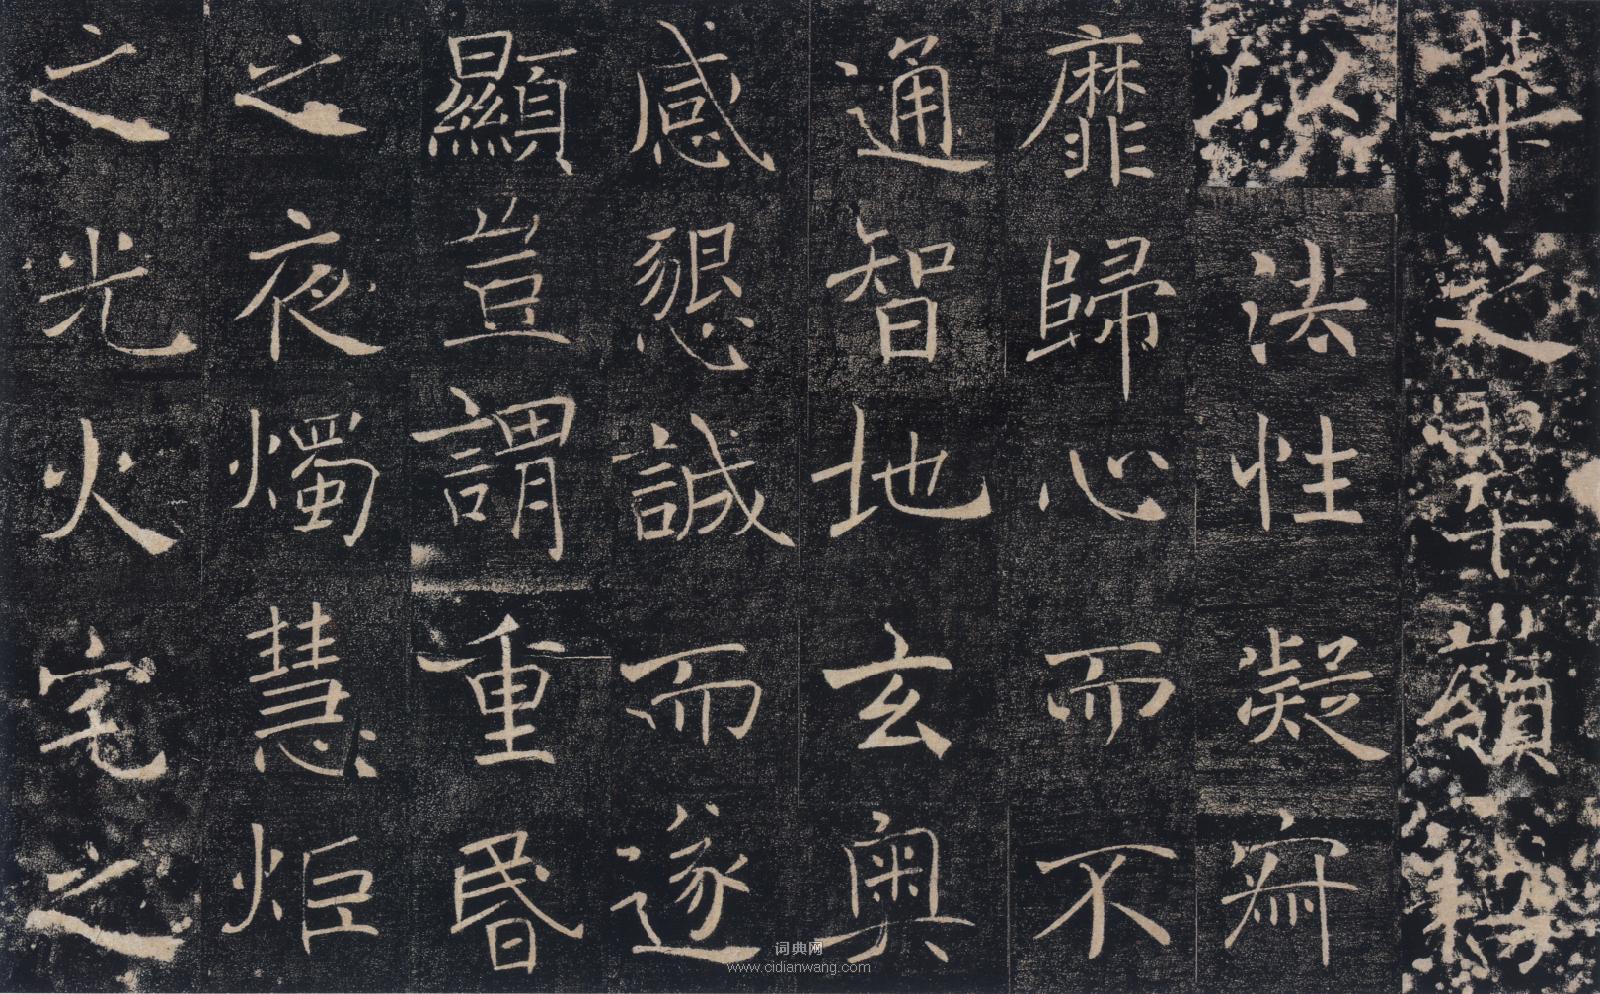 華之翠嶺竊
以法性凝寂
靡歸心而不
通智地玄奧
感懇誠而遂
顯豈謂重昬
之夜燭慧炬
之光火宅之
词典网
www.cidianwang.com